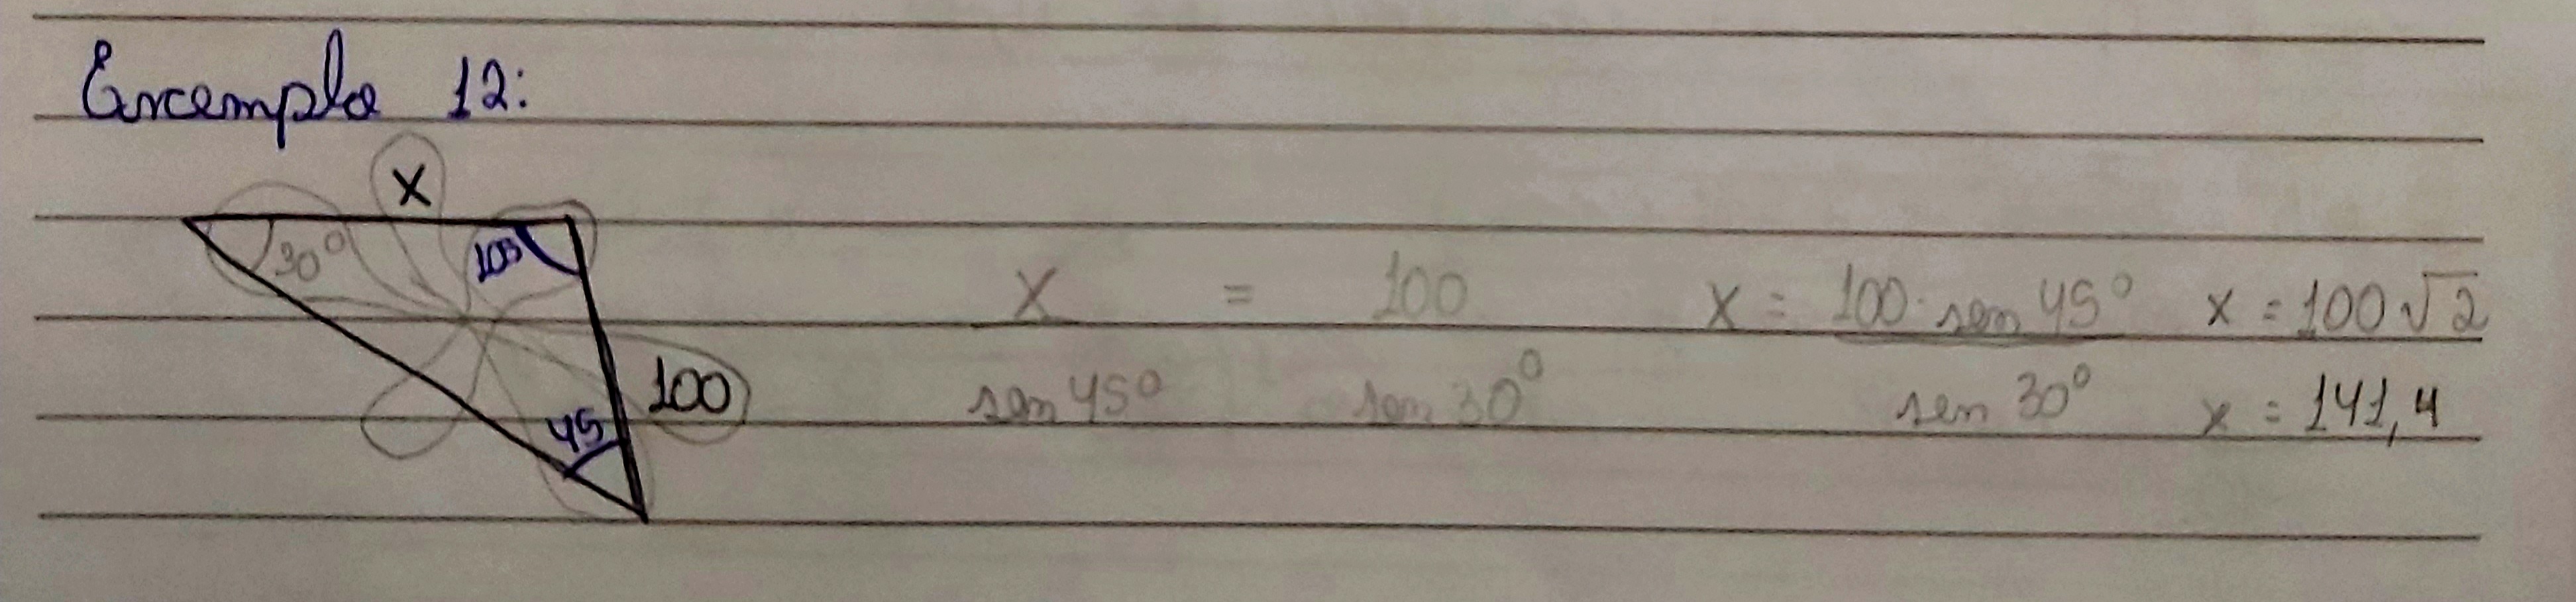 Exemplo 12:
X
30° 105
100
45
X = 100
sen 45° sen 30°
x = 100 · sen 45°
sen 30°
x = 100√2
x = 141,4